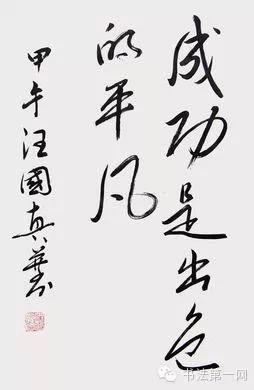 成功是出色
的平凡
甲午汪國真義
书法第一网